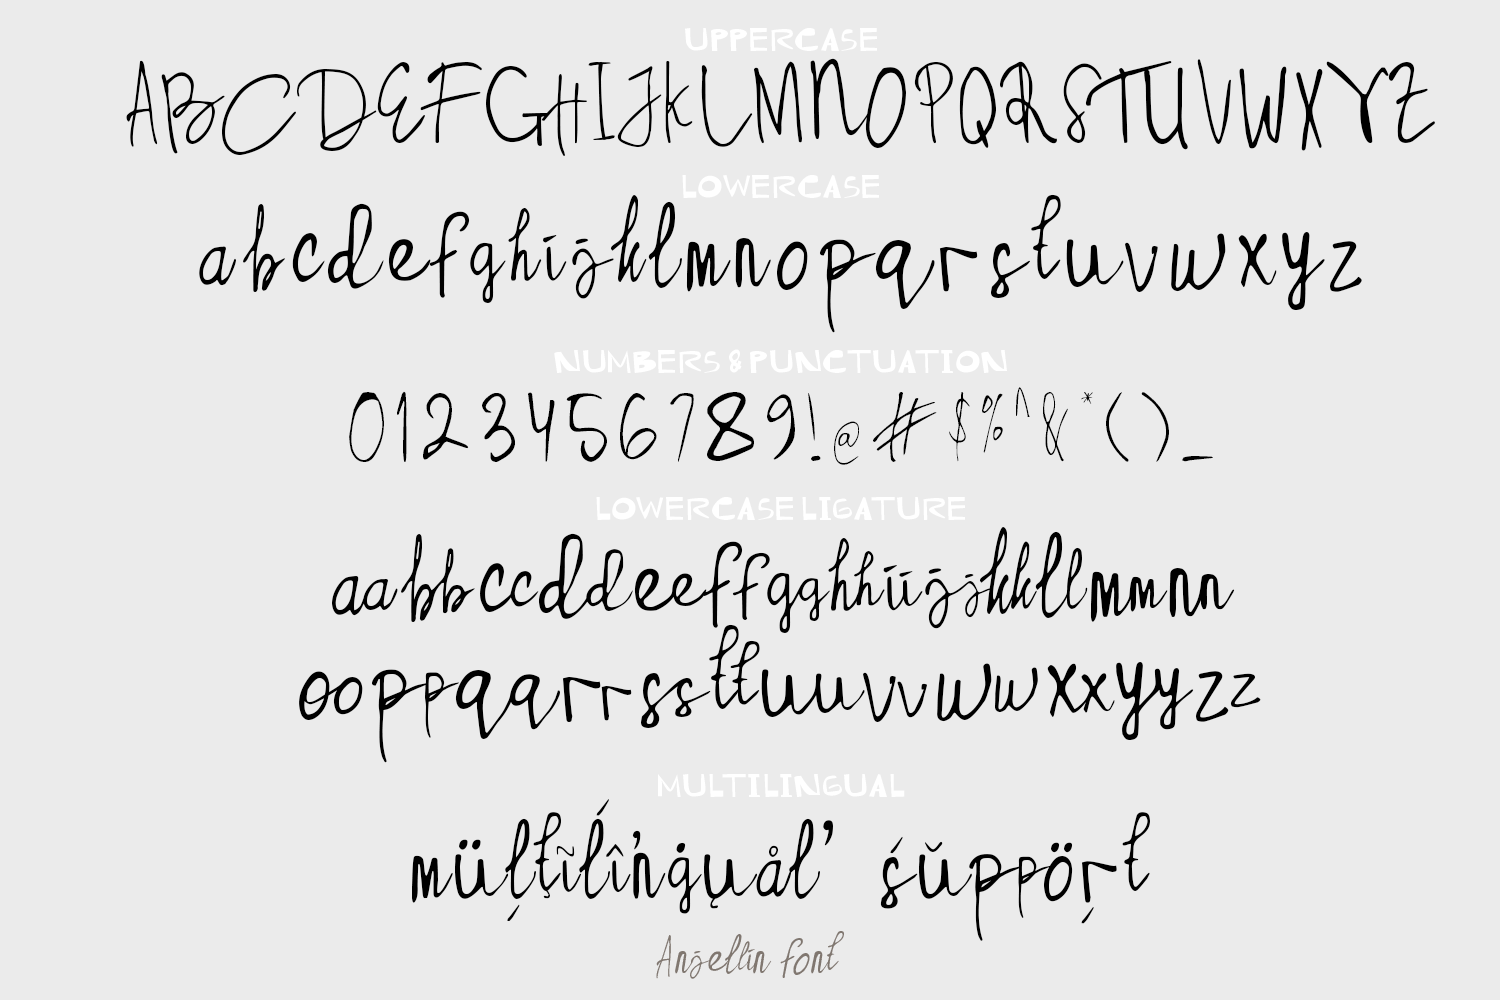 UPPERCASE
ABCDEFGHIJKLMNOPQRSTUVWXYZ
LOWERCASE
abcdefghijklmnopqrstuvwxyz
NUMBERS & PUNCTUATION
0123456789!@#$%^&*()_
LOWERCASE LIGATURE
aabbccddeeffgghhiijjkkllmmnn
ooppqqrrssttuuvvwwxxyyzz
MULTILINGUAL
müļţĩĺîŉġųåľ śŭppöŗt
Anjellin font